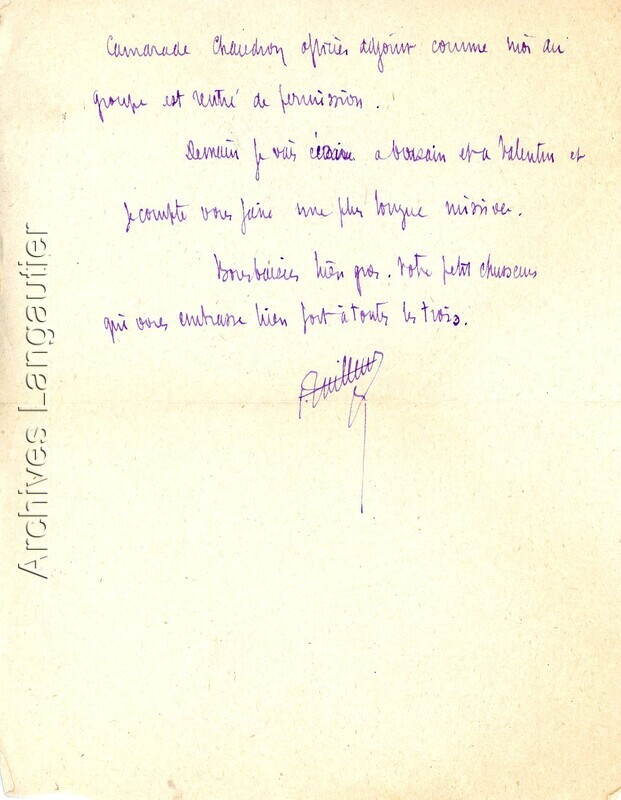 Camarade Chaudron officier adjoint comme moi au
groupe est rentré de permission.
Demain je vais écrire a et a Valentin et
je compte vous faire une plus longue missive.
Bons baisers bien gros. Votre petit chasseur
qui vous embrasse bien fort à toutes les trois.
Archives Langautier